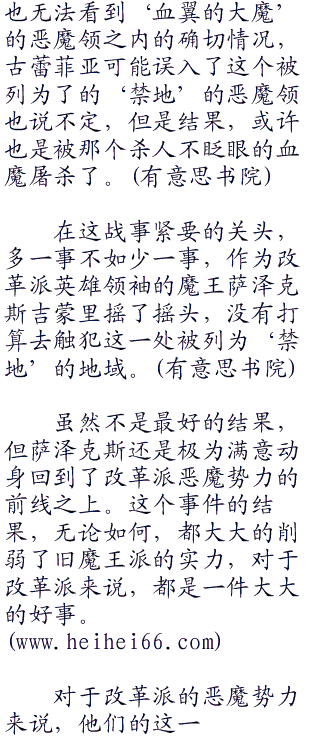 也无法看到‘血翼的大魔’
的恶魔领之内的确切情况，
古蕾菲亚可能误入了这个被
列为了的‘禁地’的恶魔领
也说不定，但是结果，或许
也是被那个杀人不眨眼的血
魔屠杀了。(有意思书院)
在这战事紧要的关头，
多一事不如少一事，作为改
革派英雄领袖的魔王萨泽克
斯吉蒙里摇了摇头，没有打
算去触犯这一处被列为‘禁
地’的地域。(有意思书院)
虽然不是最好的结果，
但萨泽克斯还是极为满意动
身回到了改革派恶魔势力的
前线之上。这个事件的结
果，无论如何，都大大的削
弱了旧魔王派的实力，对于
改革派来说，都是一件大大
的好事。
(www.heihei66.com)
对于改革派的恶魔势力
来说，他们的这一